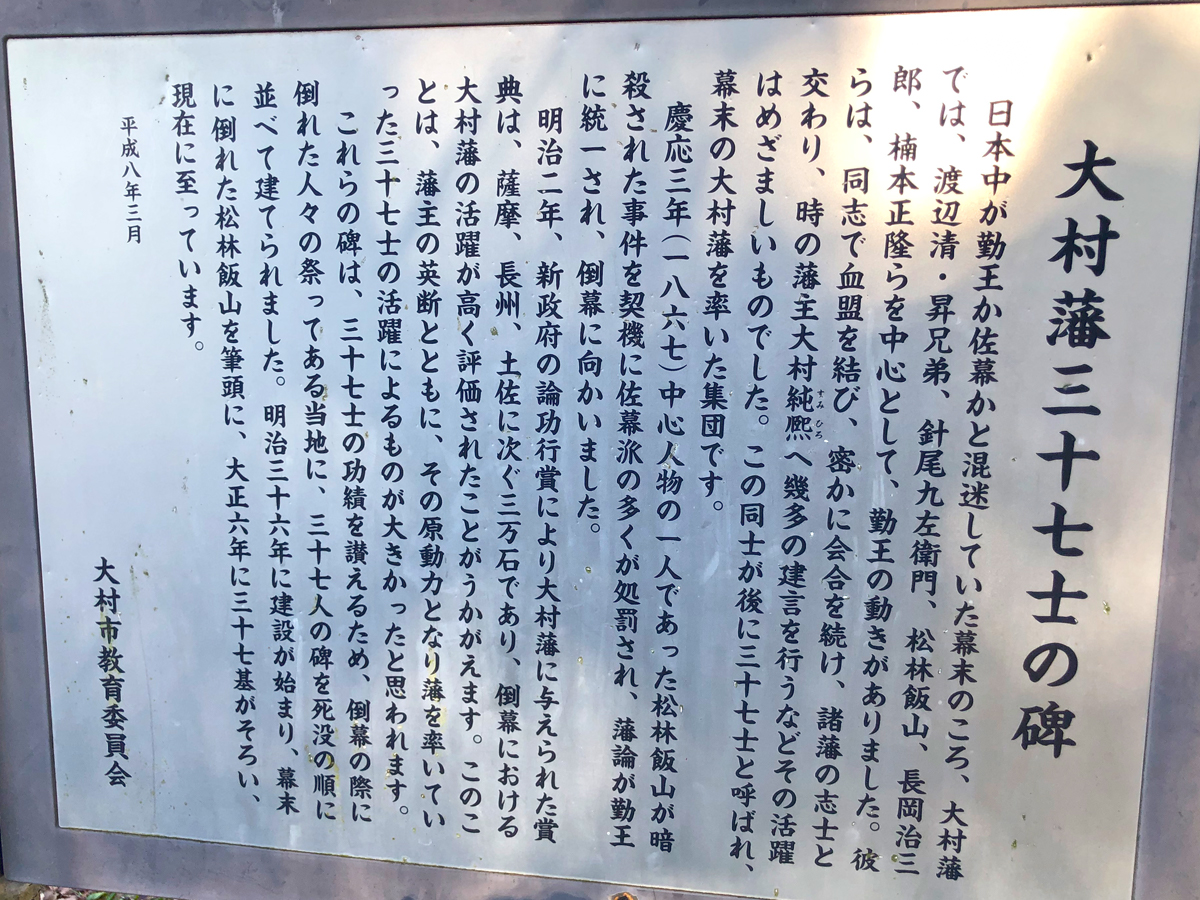 大村藩三十七士の碑
日本中が勤王か佐幕かと混迷していた幕末のころ、大村藩
では、渡辺清・昇兄弟、針尾九左衛門、松林飯山、長岡治三
郎、楠本正隆らを中心として、勤王の動きがありました。彼
らは、同志で血盟を結び、密かに会合を続け、諸藩の志士と
交わり、時の藩主大村純熈すみひろへ幾多の建言を行うなどその活躍
はめざましいものでした。この同士が後に三十七士と呼ばれ、
幕末の大村藩を率いた集団です。
慶応三年(一八六七)中心人物の一人であった松林飯山が暗
殺された事件を契機に佐幕派の多くが処罰され、藩論が勤王
に統一され、倒幕に向かいました。
明治二年、新政府の論功行賞により大村藩に与えられた賞
典は、薩摩、長州、土佐に次ぐ三万石であり、倒幕における
大村藩の活躍が高く評価されたことがうかがえます。このこ
とは、藩主の英断とともに、その原動力となり藩を率いてい
った三十七士の活躍によるものが大きかったと思われます。
これらの碑は、三十七士の功績を讃えるため、倒幕の際に
倒れた人々の祭ってある当地に、三十七人の碑を死没の順に
並べて建てられました。明治三十六年に建設が始まり、幕末
に倒れた松林飯山を筆頭に、大正六年に三十七基がそろい、
現在に至っています。
平成八年三月
大村市教育委員会